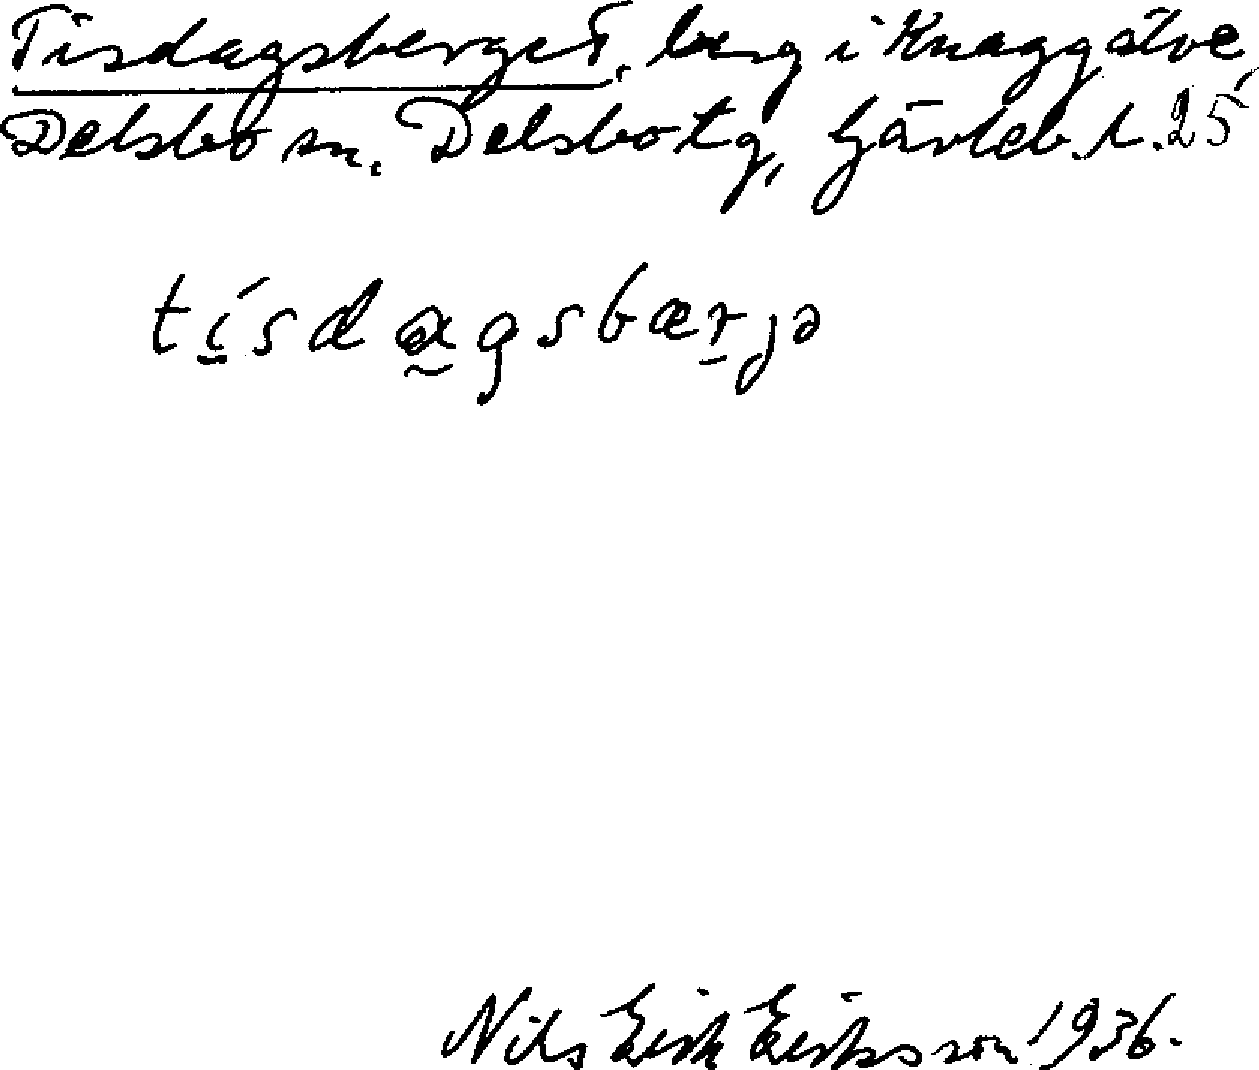 Tisdagsberget, berg i Knaggälve,
Delsbo sn. Delsbo tg, Gävleb. l. 25
tísdagsbærjə
Nils Erik Eriksson 1936.